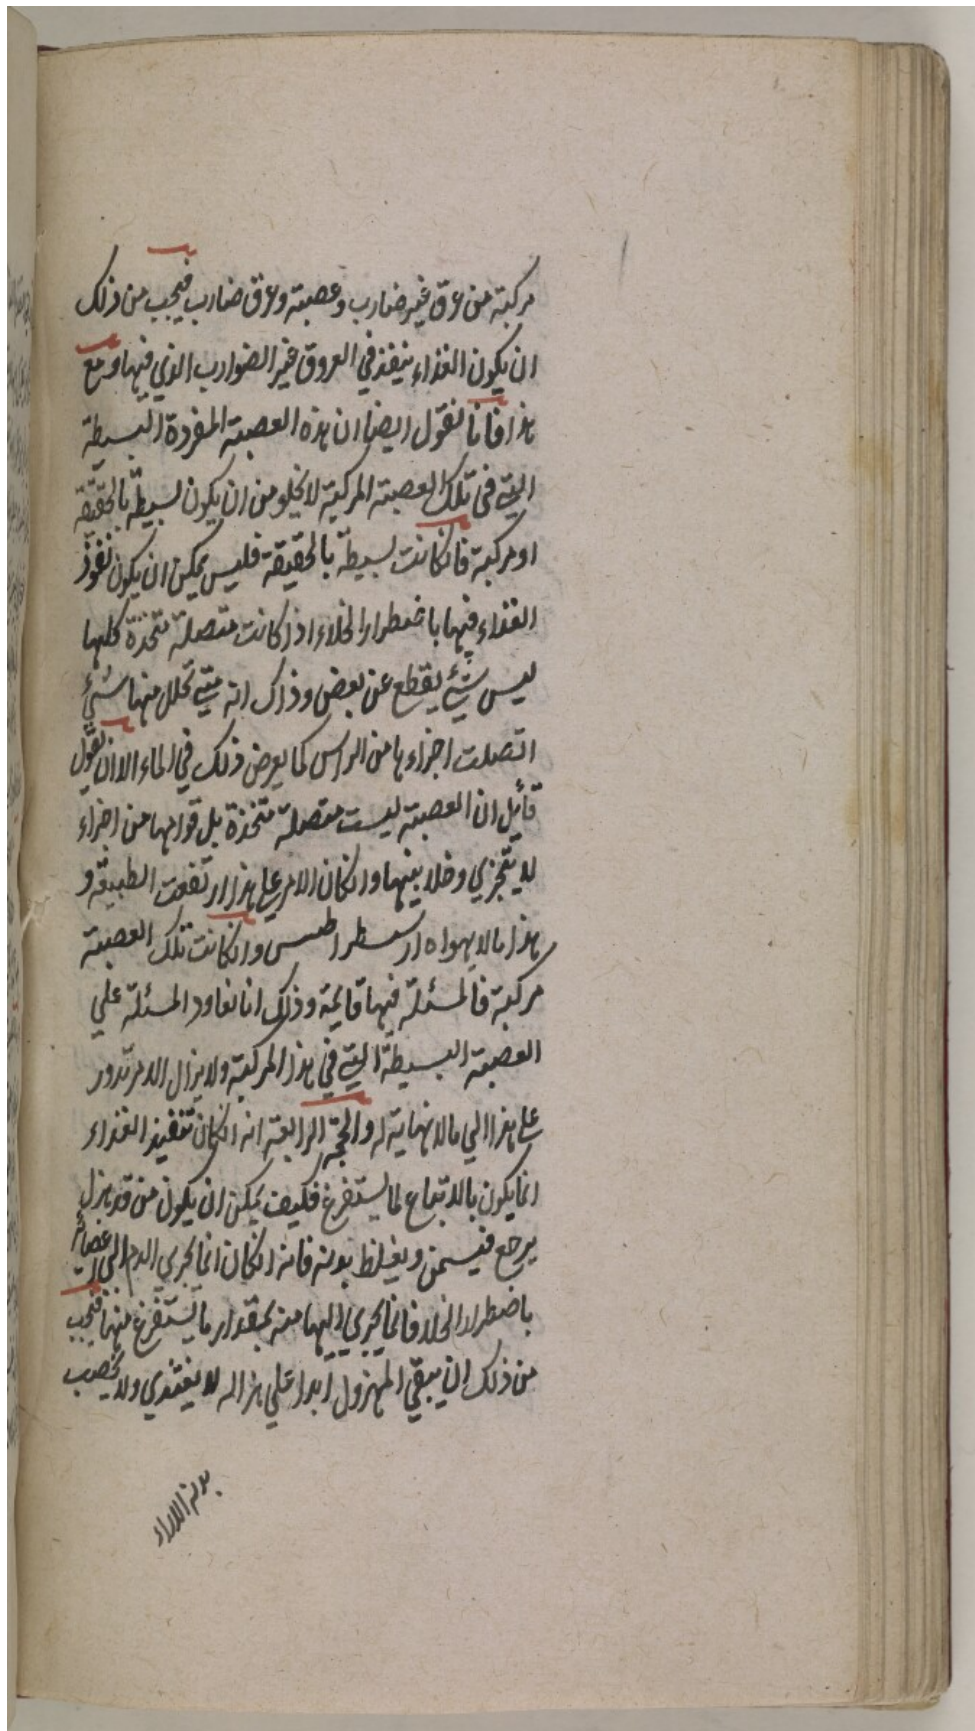 مركبة من عرق غير ضارب وعصبة وعرق ضارب فيجب من ذلك
ان يكون الغذاء ينفذ في العروق غير الضوارب الذي فيها ومع
هذا فانا نقول ايضا ان هذه العصبة المفردة البسيطة
التي في تلك العصبة المركبة لا يخلو من ان يكون بسيطة بالحقيقة
او مركبة فان كانت بسيطة بالحقيقة فليس يمكن ان يكون نفوذ
الغذاء فيها باضطرار الخلاء اذ كانت متصلة متحدة كلها
ليس شيء يقطع عن بعض وذاك انه متى تحلل منها شيء
اتصلت اجزاءها من الراس كما يعرض ذلك في الماء الا ان يقول
قائل ان العصبة ليست متصلة متحدة بل قوامها من اجزاء
لا يتجزي وخلا بينها وان كان الامر على هذا ارتفعت الطبيعة و
هذا ما لا يهواه ارسطراطس وان كانت تلك العصبة
مركبة فالمسئلة فيها قائمة وذلك انا نعاود المسئلة علي
العصبة البسيطة التي في هذا المركبة ولا يزال الامر تدور
على هذا الي ما لا نهاية له والحجة الرابعة انه ان كان تنفيذ الغذاء
انما يكون بالاتباع لما يستفرغ فكيف يمكن ان يكون من قد هزل
يرجع فيسمن ويغلظ بدنه فانه ان كان انما يجري الدم الي الاعضاء
باضطرار الخلا فانما يجري اليها منه بمقدار ما يستفرغ منها فيجب
من ذلك ان يبقي المهزول ابدا علي هزاله لا يغتذي ولا يخصب
بدنه الاراء